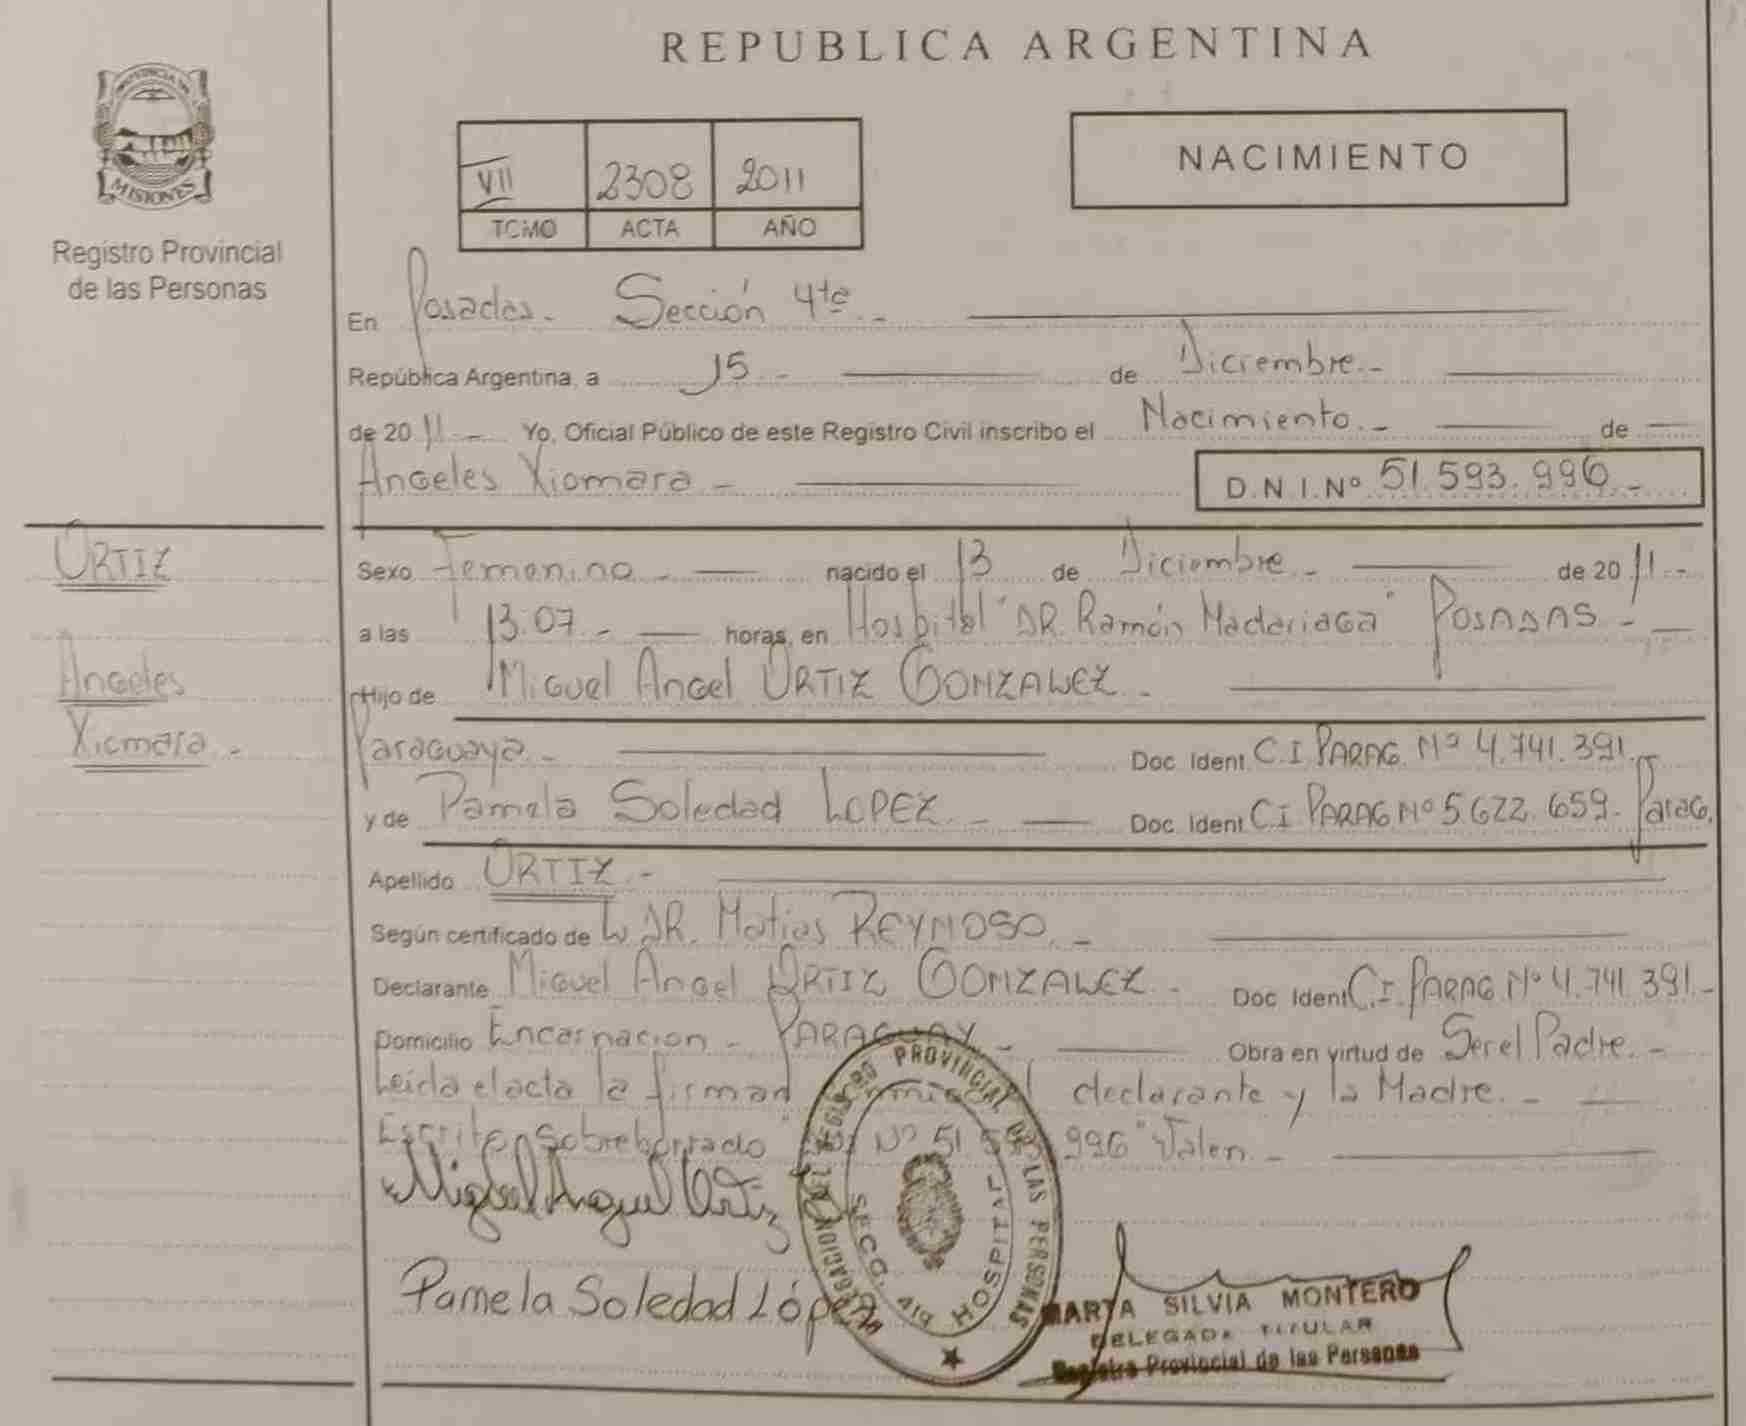 REPUBLICA ARGENTINA
PROVINCIA DE
MISIONES
Registro Provincial
de las Personas
VII 2308 2011
TOMO ACTA AÑO
NACIMIENTO
En Posadas.- Sección 4ta.-
República Argentina, a 15.- de Diciembre.-
de 2011.- Yo, Oficial Público de este Registro Civil inscribo el Nacimiento.- de
Angeles Xiomara.- D.N.I.Nº 51.593.996.-
ORTIZ
Angeles
Xiomara.-
Sexo Femenino.- nacido el 13 de Diciembre.- de 2011.-
a las 13.07.- horas, en Hospital "DR. Ramón Madariaga" POSADAS.-
Hijo de Miguel Angel ORTIZ GONZALEZ.-
Paraguaya.- Doc. Ident. C.I. PARAG. Nº 4.741.391.
y de Pamela Soledad LOPEZ.- Doc. Ident. C.I. PARAG. Nº 5.622.659.- Parag.
Apellido ORTIZ.-
Según certificado de DR. Matias REYNOSO.-
Declarante Miguel Angel ORTIZ GONZALEZ.- Doc. Ident. C.I. PARAG. Nº 4.741.391.-
Domicilio Encarnacion - PARAGUAY.- Obra en virtud de Ser el Padre.-
Leida el acta la firman declarante y la Madre.-
Escrito Sobreborrado Nº 51 996" Valen.-
Miguel Angel Ortiz
Pamela Soledad López
REGISTRO PROVINCIAL DE LAS PERSONAS
SECC. HOSPITAL
MARTA SILVIA MONTERO
DELEGADA TITULAR
Registro Provincial de las Personas